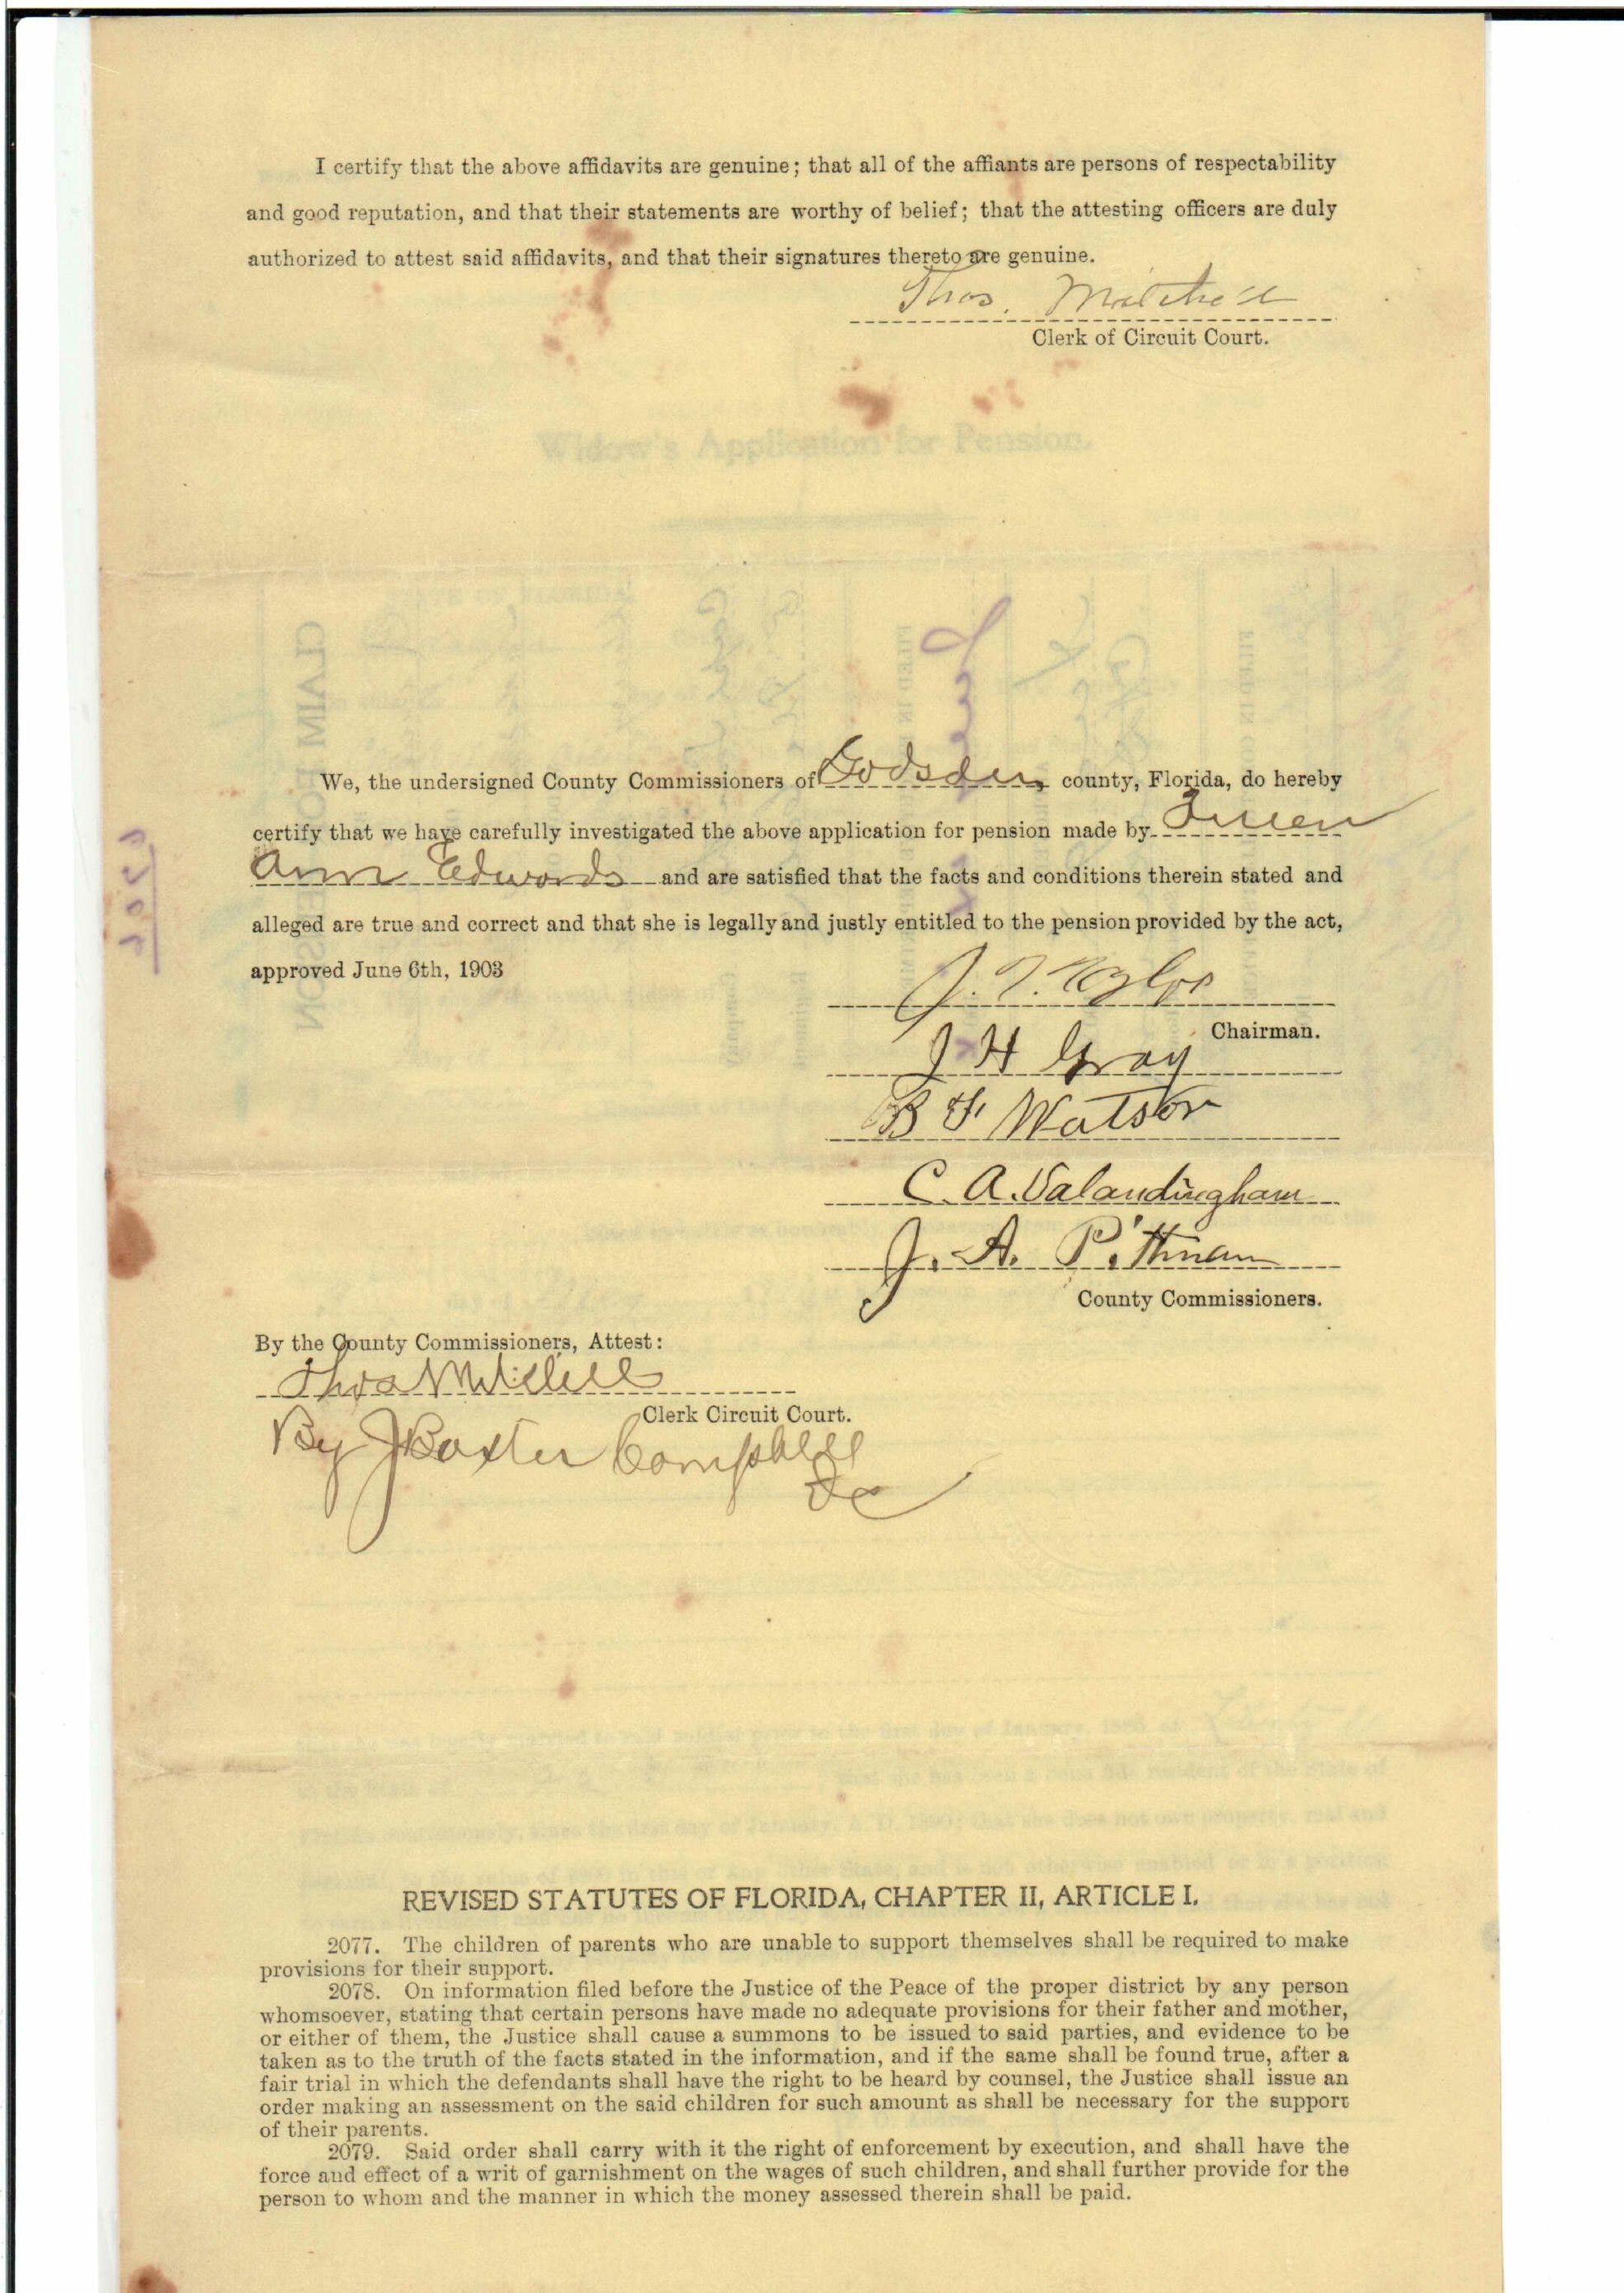 I certify that the above affidavits are genuine; that all of the affiants are persons of respectability
and good reputation, and that their statements are worthy of belief; that the attesting officers are duly
authorized to attest said affidavits, and that their signatures thereto are genuine.
Thos. Mitchell
Clerk of Circuit Court.
Widow's Application for Pension.
We, the undersigned County Commissioners of Gadsden county, Florida, do hereby
certify that we have carefully investigated the above application for pension made by
Ann Edwards and are satisfied that the facts and conditions therein stated and
alleged are true and correct and that she is legally and justly entitled to the pension provided by the act,
approved June 6th, 1903
J.
Chairman.
J H Gray
B F Watson
C. A. Valandingham
J. A. Pittman
County Commissioners.
By the County Commissioners, Attest:
Thos Mitchell
Clerk Circuit Court.
By J Baxter Campbell
DC
REVISED STATUTES OF FLORIDA, CHAPTER II, ARTICLE I.
2077. The children of parents who are unable to support themselves shall be required to make
provisions for their support.
2078. On information filed before the Justice of the Peace of the proper district by any person
whomsoever, stating that certain persons have made no adequate provisions for their father and mother,
or either of them, the Justice shall cause a summons to be issued to said parties, and evidence to be
taken as to the truth of the facts stated in the information, and if the same shall be found true, after a
fair trial in which the defendants shall have the right to be heard by counsel, the Justice shall issue an
order making an assessment on the said children for such amount as shall be necessary for the support
of their parents.
2079. Said order shall carry with it the right of enforcement by execution, and shall have the
force and effect of a writ of garnishment on the wages of such children, and shall further provide for the
person to whom and the manner in which the money assessed therein shall be paid.